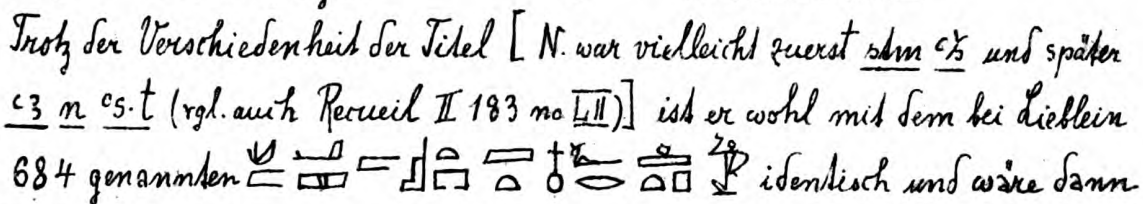 Trotz der Verschiedenheit der Titel [ N. war vielleicht zuerst sḏm ꜥš und später
ꜥꜣ n ꜥs.t (vgl. auch Recueil II 183 no LII)] ist er wohl mit dem bei Lieblein
684 genannten identisch und wäre dann